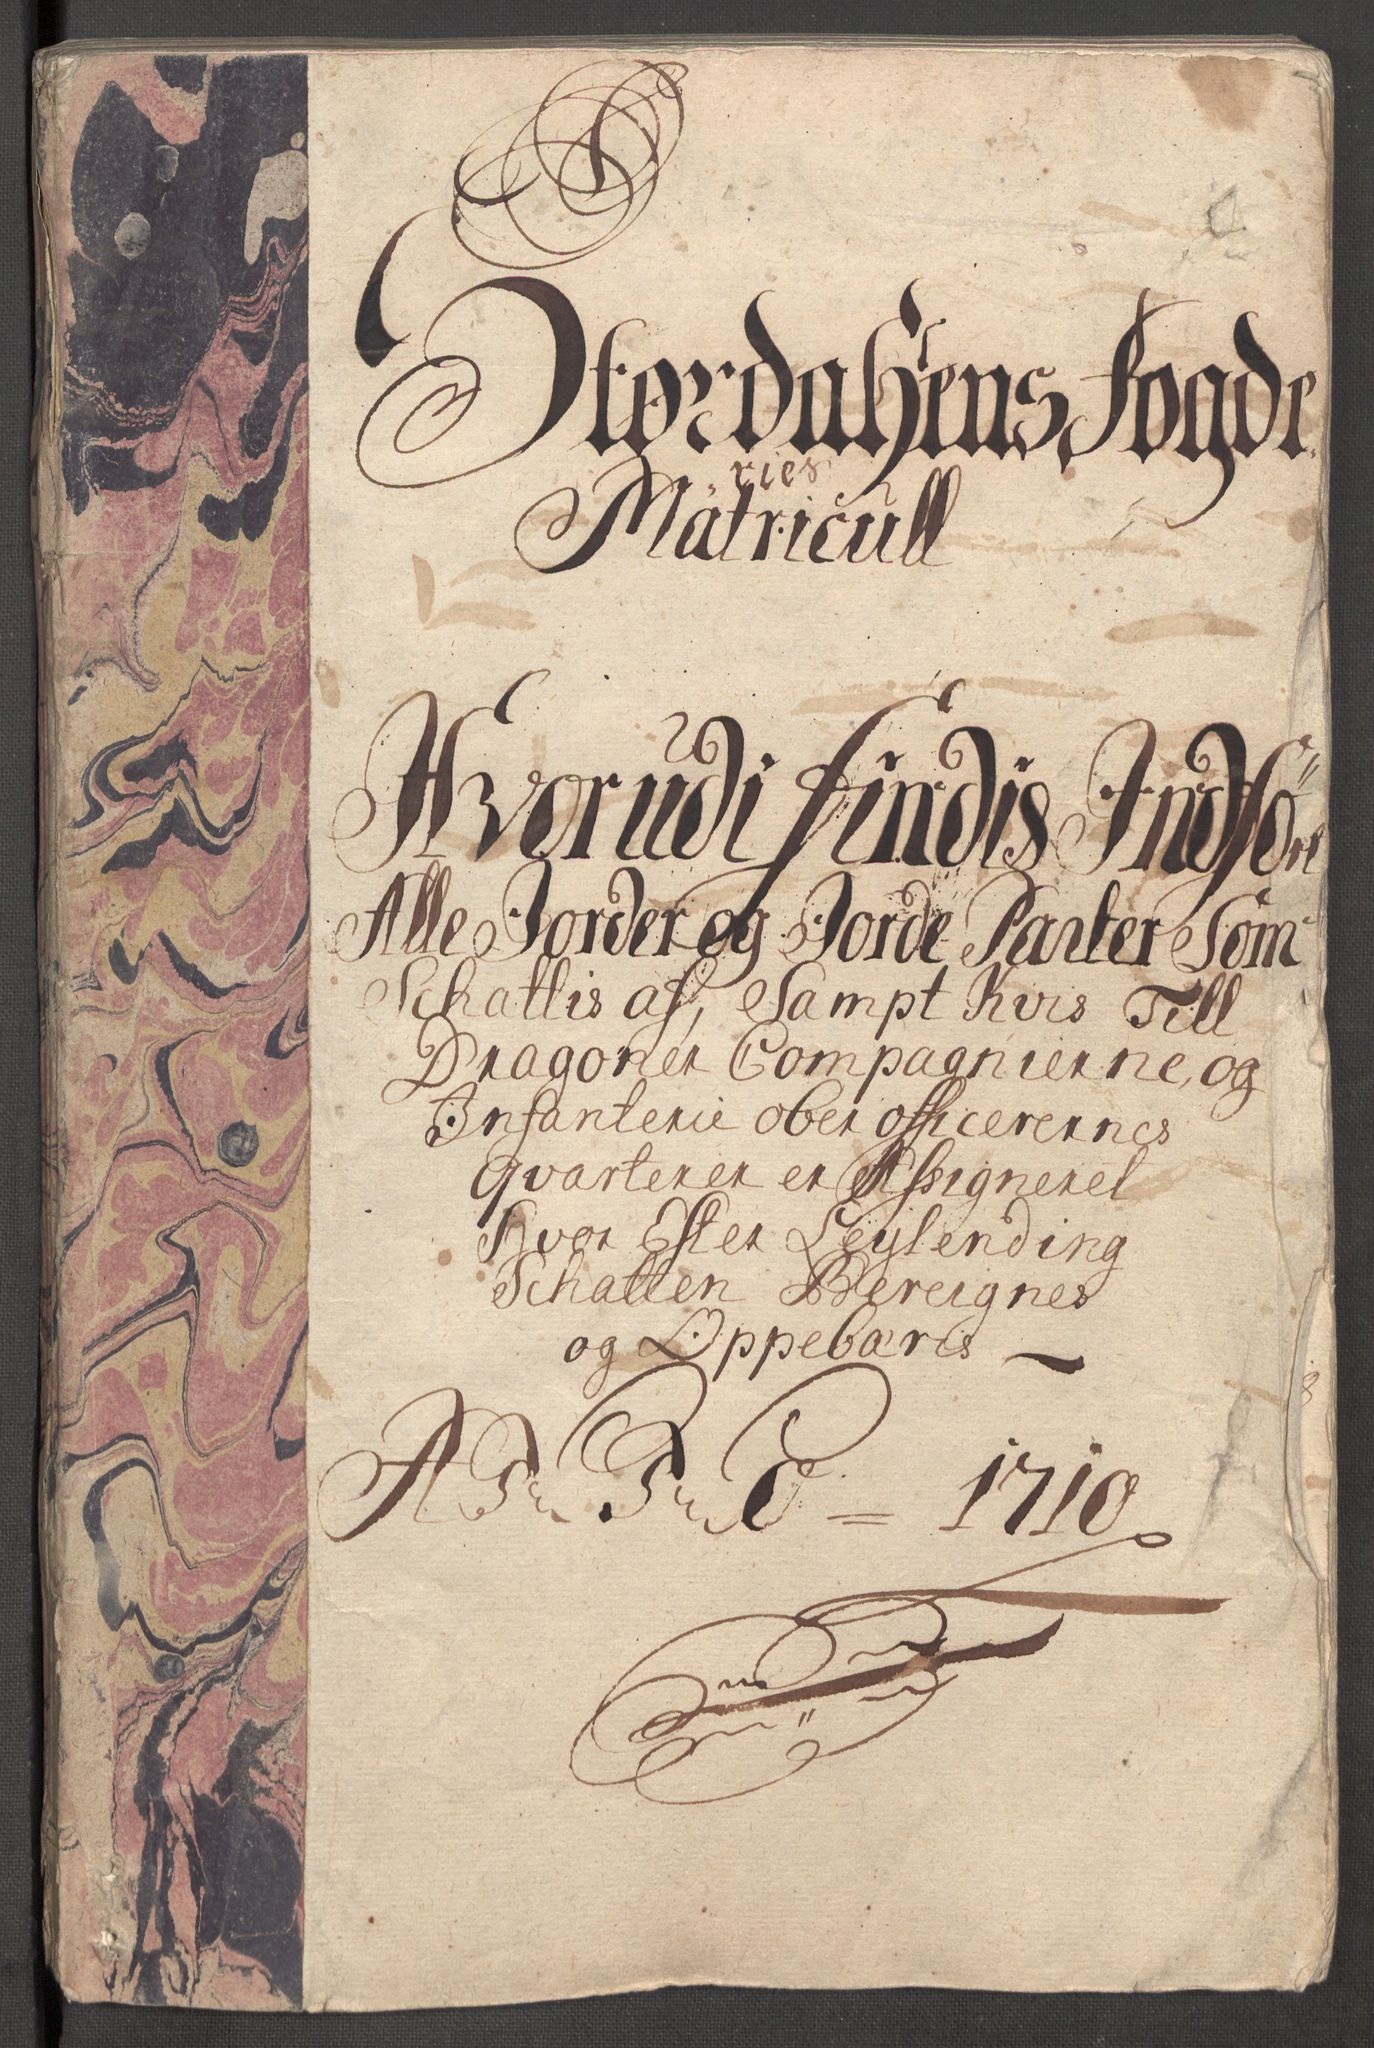 Størdahlens Fogde
ries
Matricull
Hvorudi findis Indföre
Alle Jorder og Jorde Parter Som
Schattis af, Sampt hvis Till
Dragoner Compagnierne, og
Infanterie ober officerernes
Qvarterer er Assigneret
Hvor Efter Leylending
Schatten Bereignes
og Oppebæris
1710